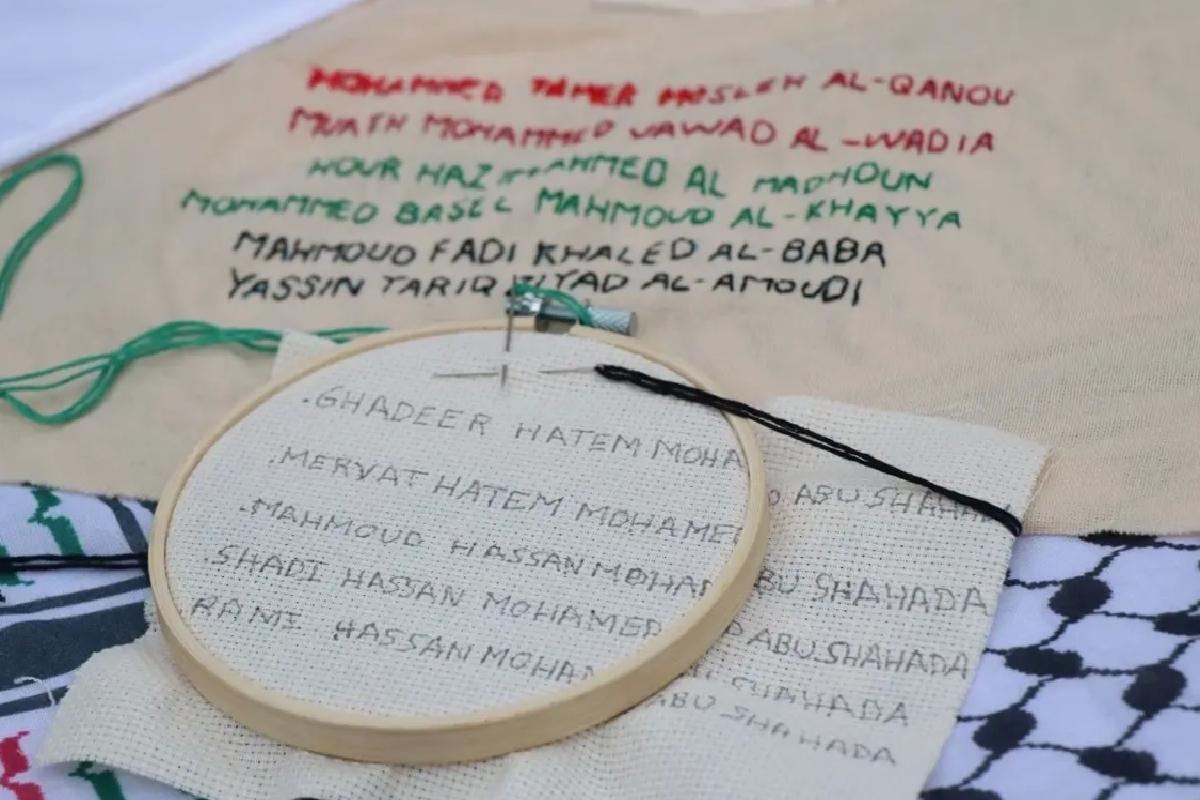 MOHAMMED TAMER MOSLEH AL-QANOU
MUATH MOHAMMED JAWAD AL-WADIA
HOUR HAZ AHMED AL MADHOUN
MOHAMMED BASEL MAHMOUD AL-KHAYYA
MAHMOUD FADI KHALED AL-BABA
YASSIN TARIQ ZIYAD AL-AMOUDI
.GHADEER HATEM MOHA ABU SHAHADA
.MERVAT HATEM MOHAMED ABU SHAHADA
.MAHMOUD HASSAN MOHAM ABU SHAHADA
.SHADI HASSAN MOHAMED SHAHADA
RAMI HASSAN MOHAM ABU SHAHADA